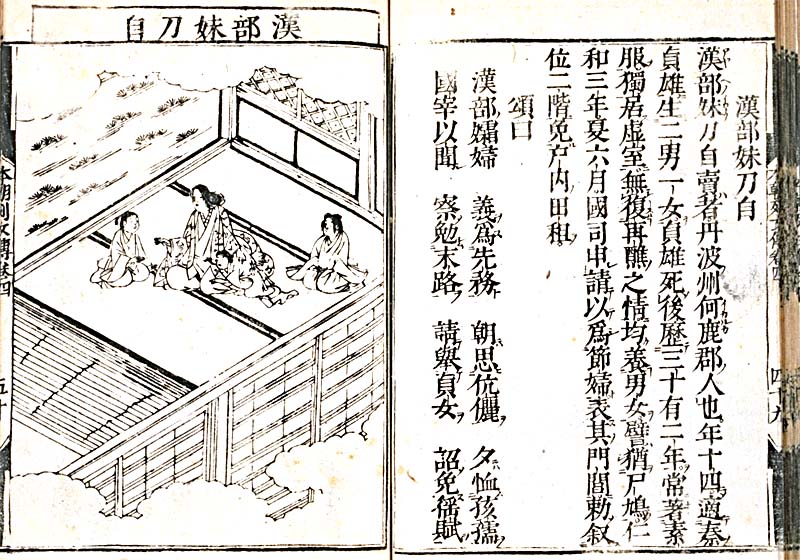 漢部妹刀自
漢部妹刀自賣者丹波州何鹿郡人也年十四適秦
貞雄生二男一女貞雄死後歷三十有二年常著素
服獨居虛室無復再醮之情均養男女譬猶尸鳩仁
和三年夏六月國司申請以爲節婦表其門閭勅叙
位二階免戶內田租
頌曰
漢部孀婦 義爲先務 朝思伉儷 夕恤孩孺
國宰以聞 察勉末路 請擧貞女 詔免徭賦
四十九
漢部妹刀自
本朝列女傳卷四
五十